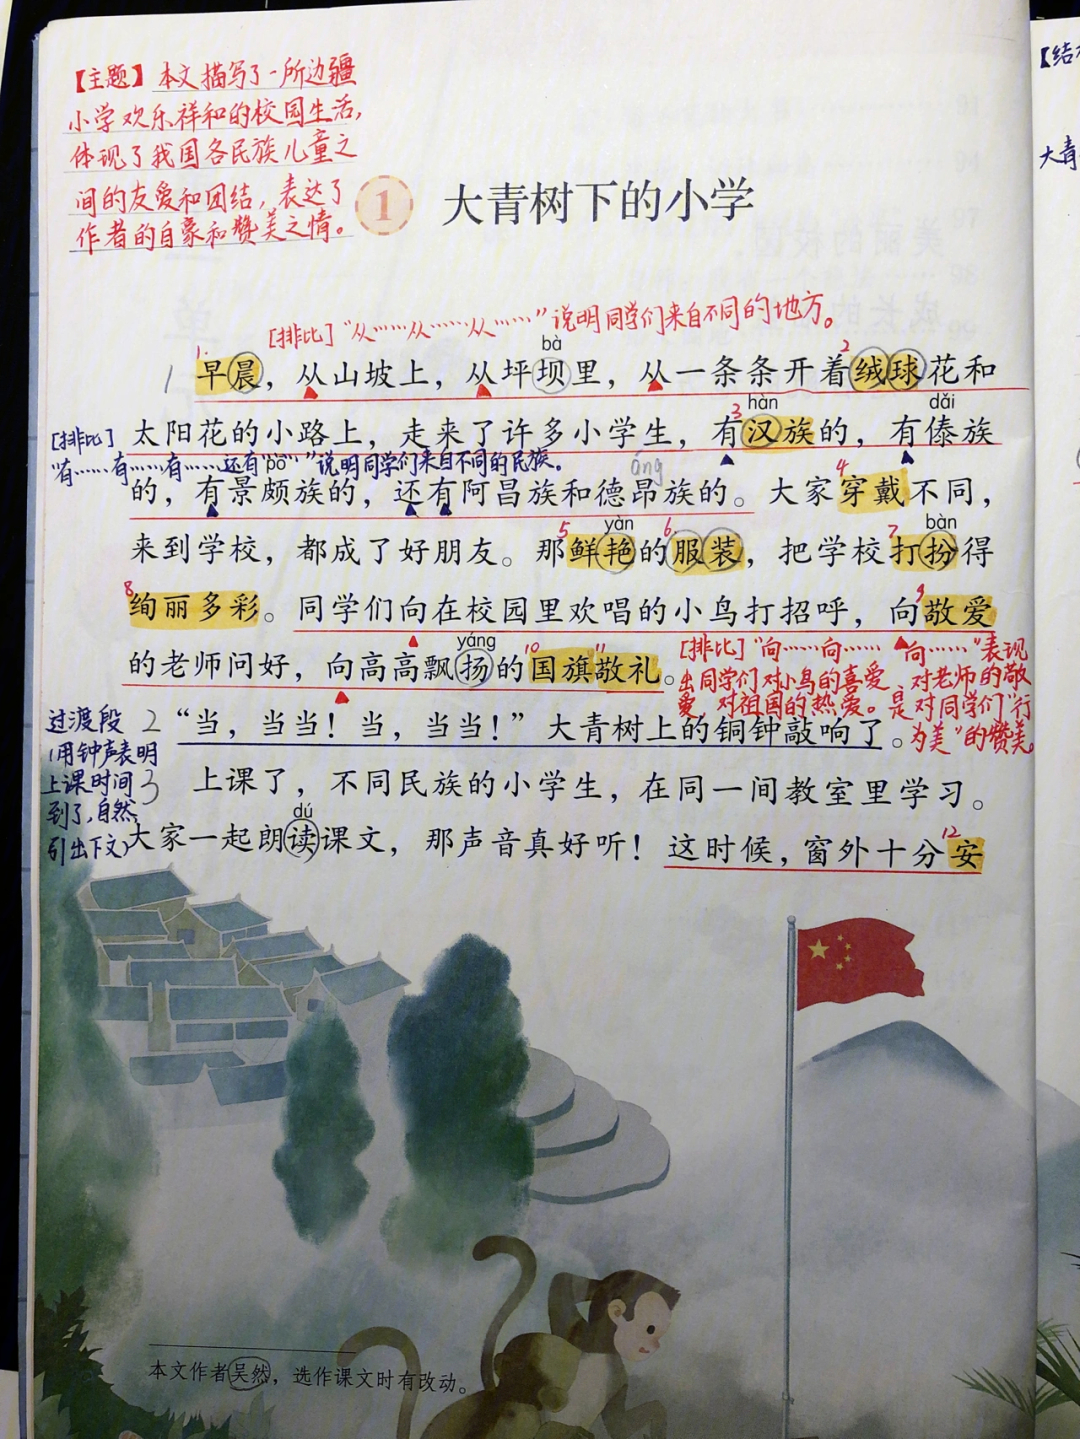 【主题】本文描写了一所边疆
小学欢乐祥和的校园生活,
体现了我国各民族儿童之
间的友爱和团结,表达了
作者的自豪和赞美之情。
1 大青树下的小学
[排比]“从……从……从……”说明同学们来自不同的地方。
bà
1. 2
1 早晨，从山坡上，从坪坝里，从一条条开着绒球花和
3 hàn dǎi
[排比] 太阳花的小路上，走来了许多小学生，有汉族的，有傣族
“有……有……有……还有……”说明同学们来自不同的民族。
pō áng 4
的，有景颇族的，还有阿昌族和德昂族的。大家穿戴不同，
5 yàn 6. 7 bàn
来到学校，都成了好朋友。那鲜艳的服装，把学校打扮得
8 9
绚丽多彩。同学们向在校园里欢唱的小鸟打招呼，向敬爱
yáng 10 11
的老师问好，向高高飘扬的国旗敬礼。
[排比]“向……向……向……”表现
出同学们对小鸟的喜爱,对老师的敬
爱,对祖国的热爱。是对同学们“行
为美”的赞美。
过渡段
(用钟声表明
上课时间
到了,自然
引出下文)
2 “当，当当！当，当当！”大青树上的铜钟敲响了。
3 上课了，不同民族的小学生，在同一间教室里学习。
dú 12
大家一起朗读课文，那声音真好听！这时候，窗外十分安
本文作者吴然，选作课文时有改动。
【结
大青